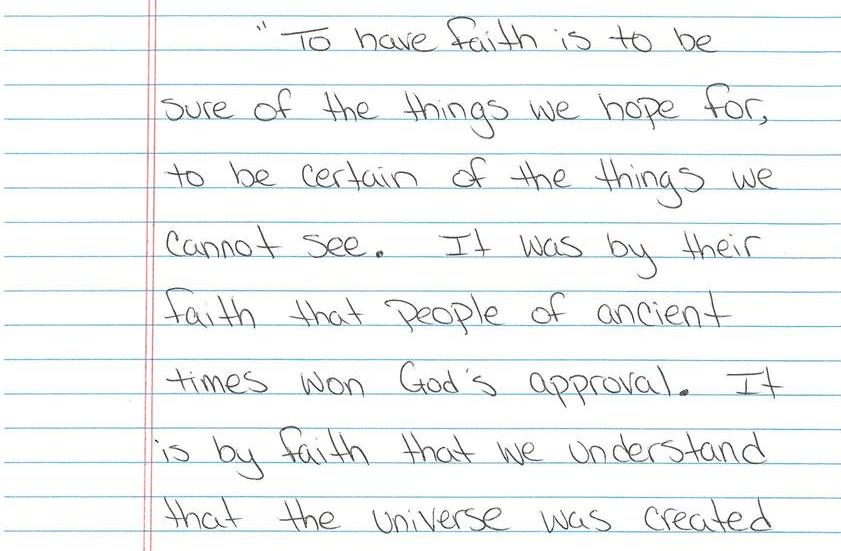 " To have faith is to be
sure of the things we hope for,
to be certain of the things we
cannot see. It was by their
faith that people of ancient
times won God's approval. It
is by faith that we understand
that the universe was created